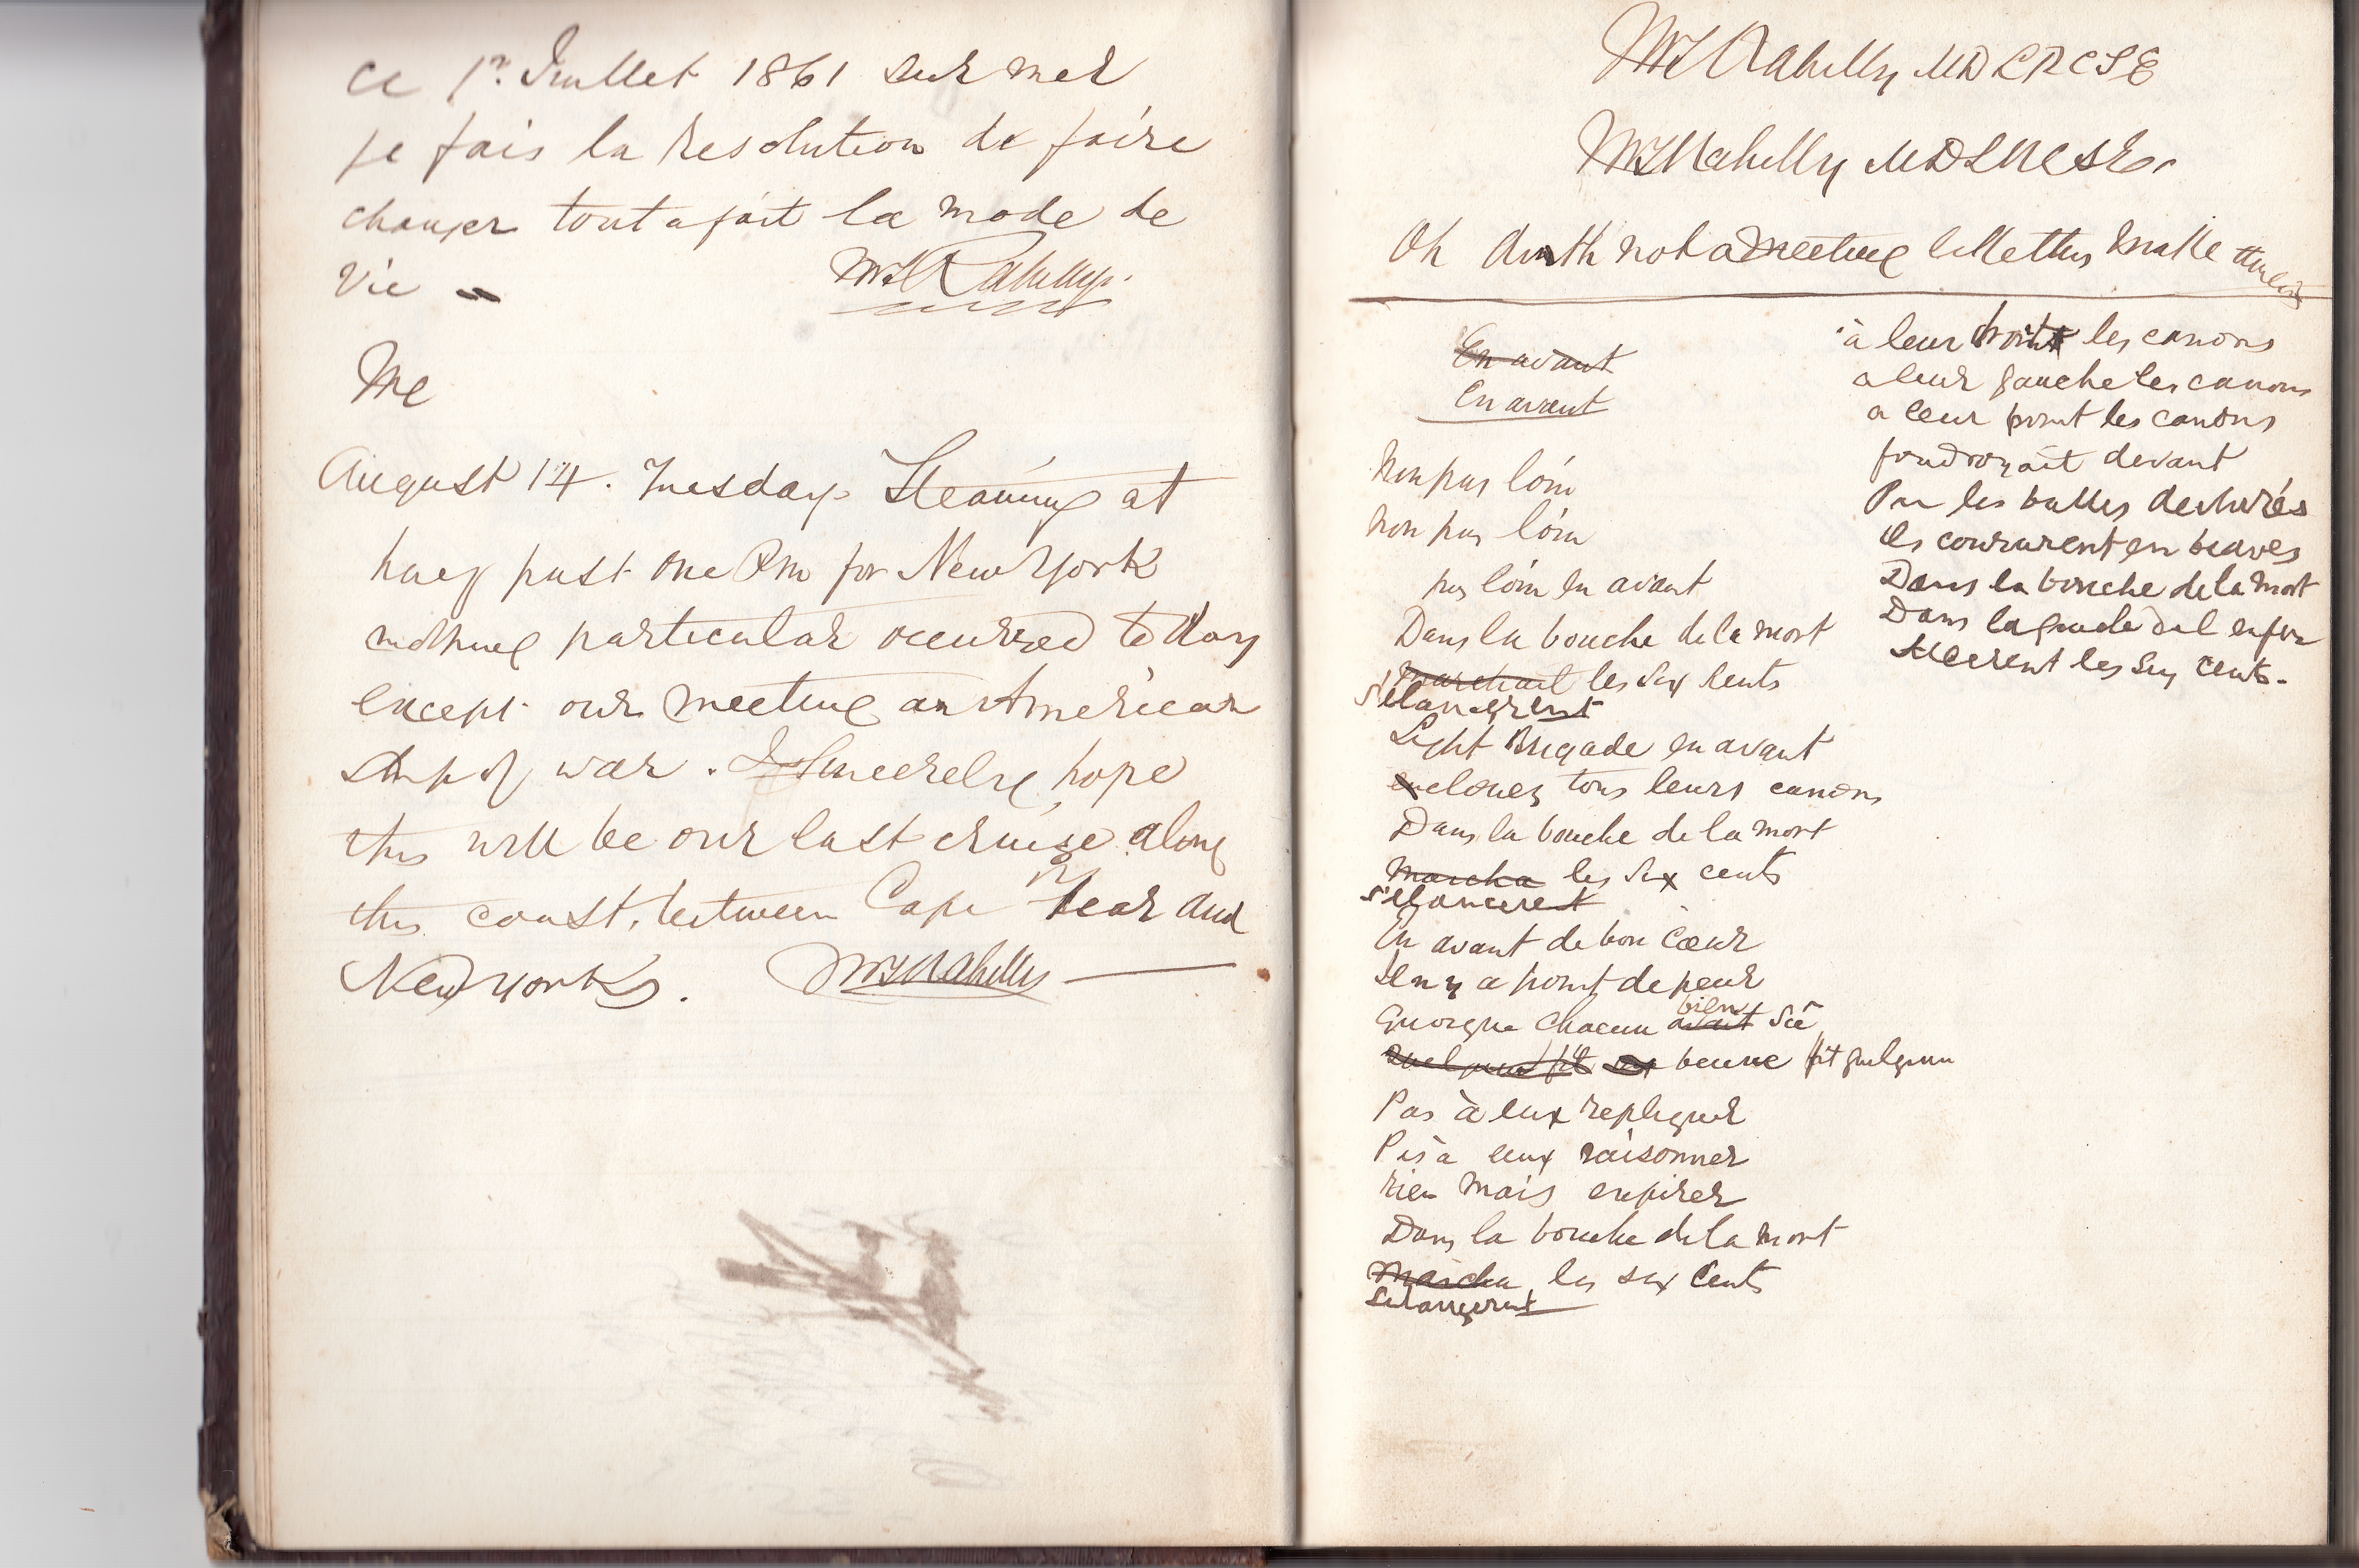 ce 1r. Juillet 1861 sur mer
je fais la resolution de faire
changer tout a fait la mode de
vie –
Me
August 14. Tuesday. Steaming at
half past one Pm for New York
nothing particular occurred to day
except our meeting an American
ship of war. I sincerely hope
this will be our last cruise along
this coast, between Cape Fear and
New York.
Rahilly MD LRCSE
Rahilly MD LRCSE.
Oh doth not a meeting like this make
En avant
En avant
Non pas loin
Non pas loin
pas loin en avant
Dans la bouche de la mort
marchait les Six Cents
s'élancerent
Light Brigade en avant
enclouez tous leurs canons
Dans la bouche de la mort
Marcha les Six cents
s'élancerent
En avant de bon Cœur
Il n y a point de peur
Quoique Chacun avait bien Sû
bevue fit quelqun
Pas à eux repliquer
Pas a eux raisonner
rien mais expirer
Dans la bouche de la mort
Marcha les six Cents
s'elancerent
à leur droit les canons
a leur gauche les canons
a leur front les canons
foudroyait devant
Par les balles dechirés
Ils coururent en braves
Dans la bouche de la mort
Dans la gueule de l enfer
Allerent les Six Cents.